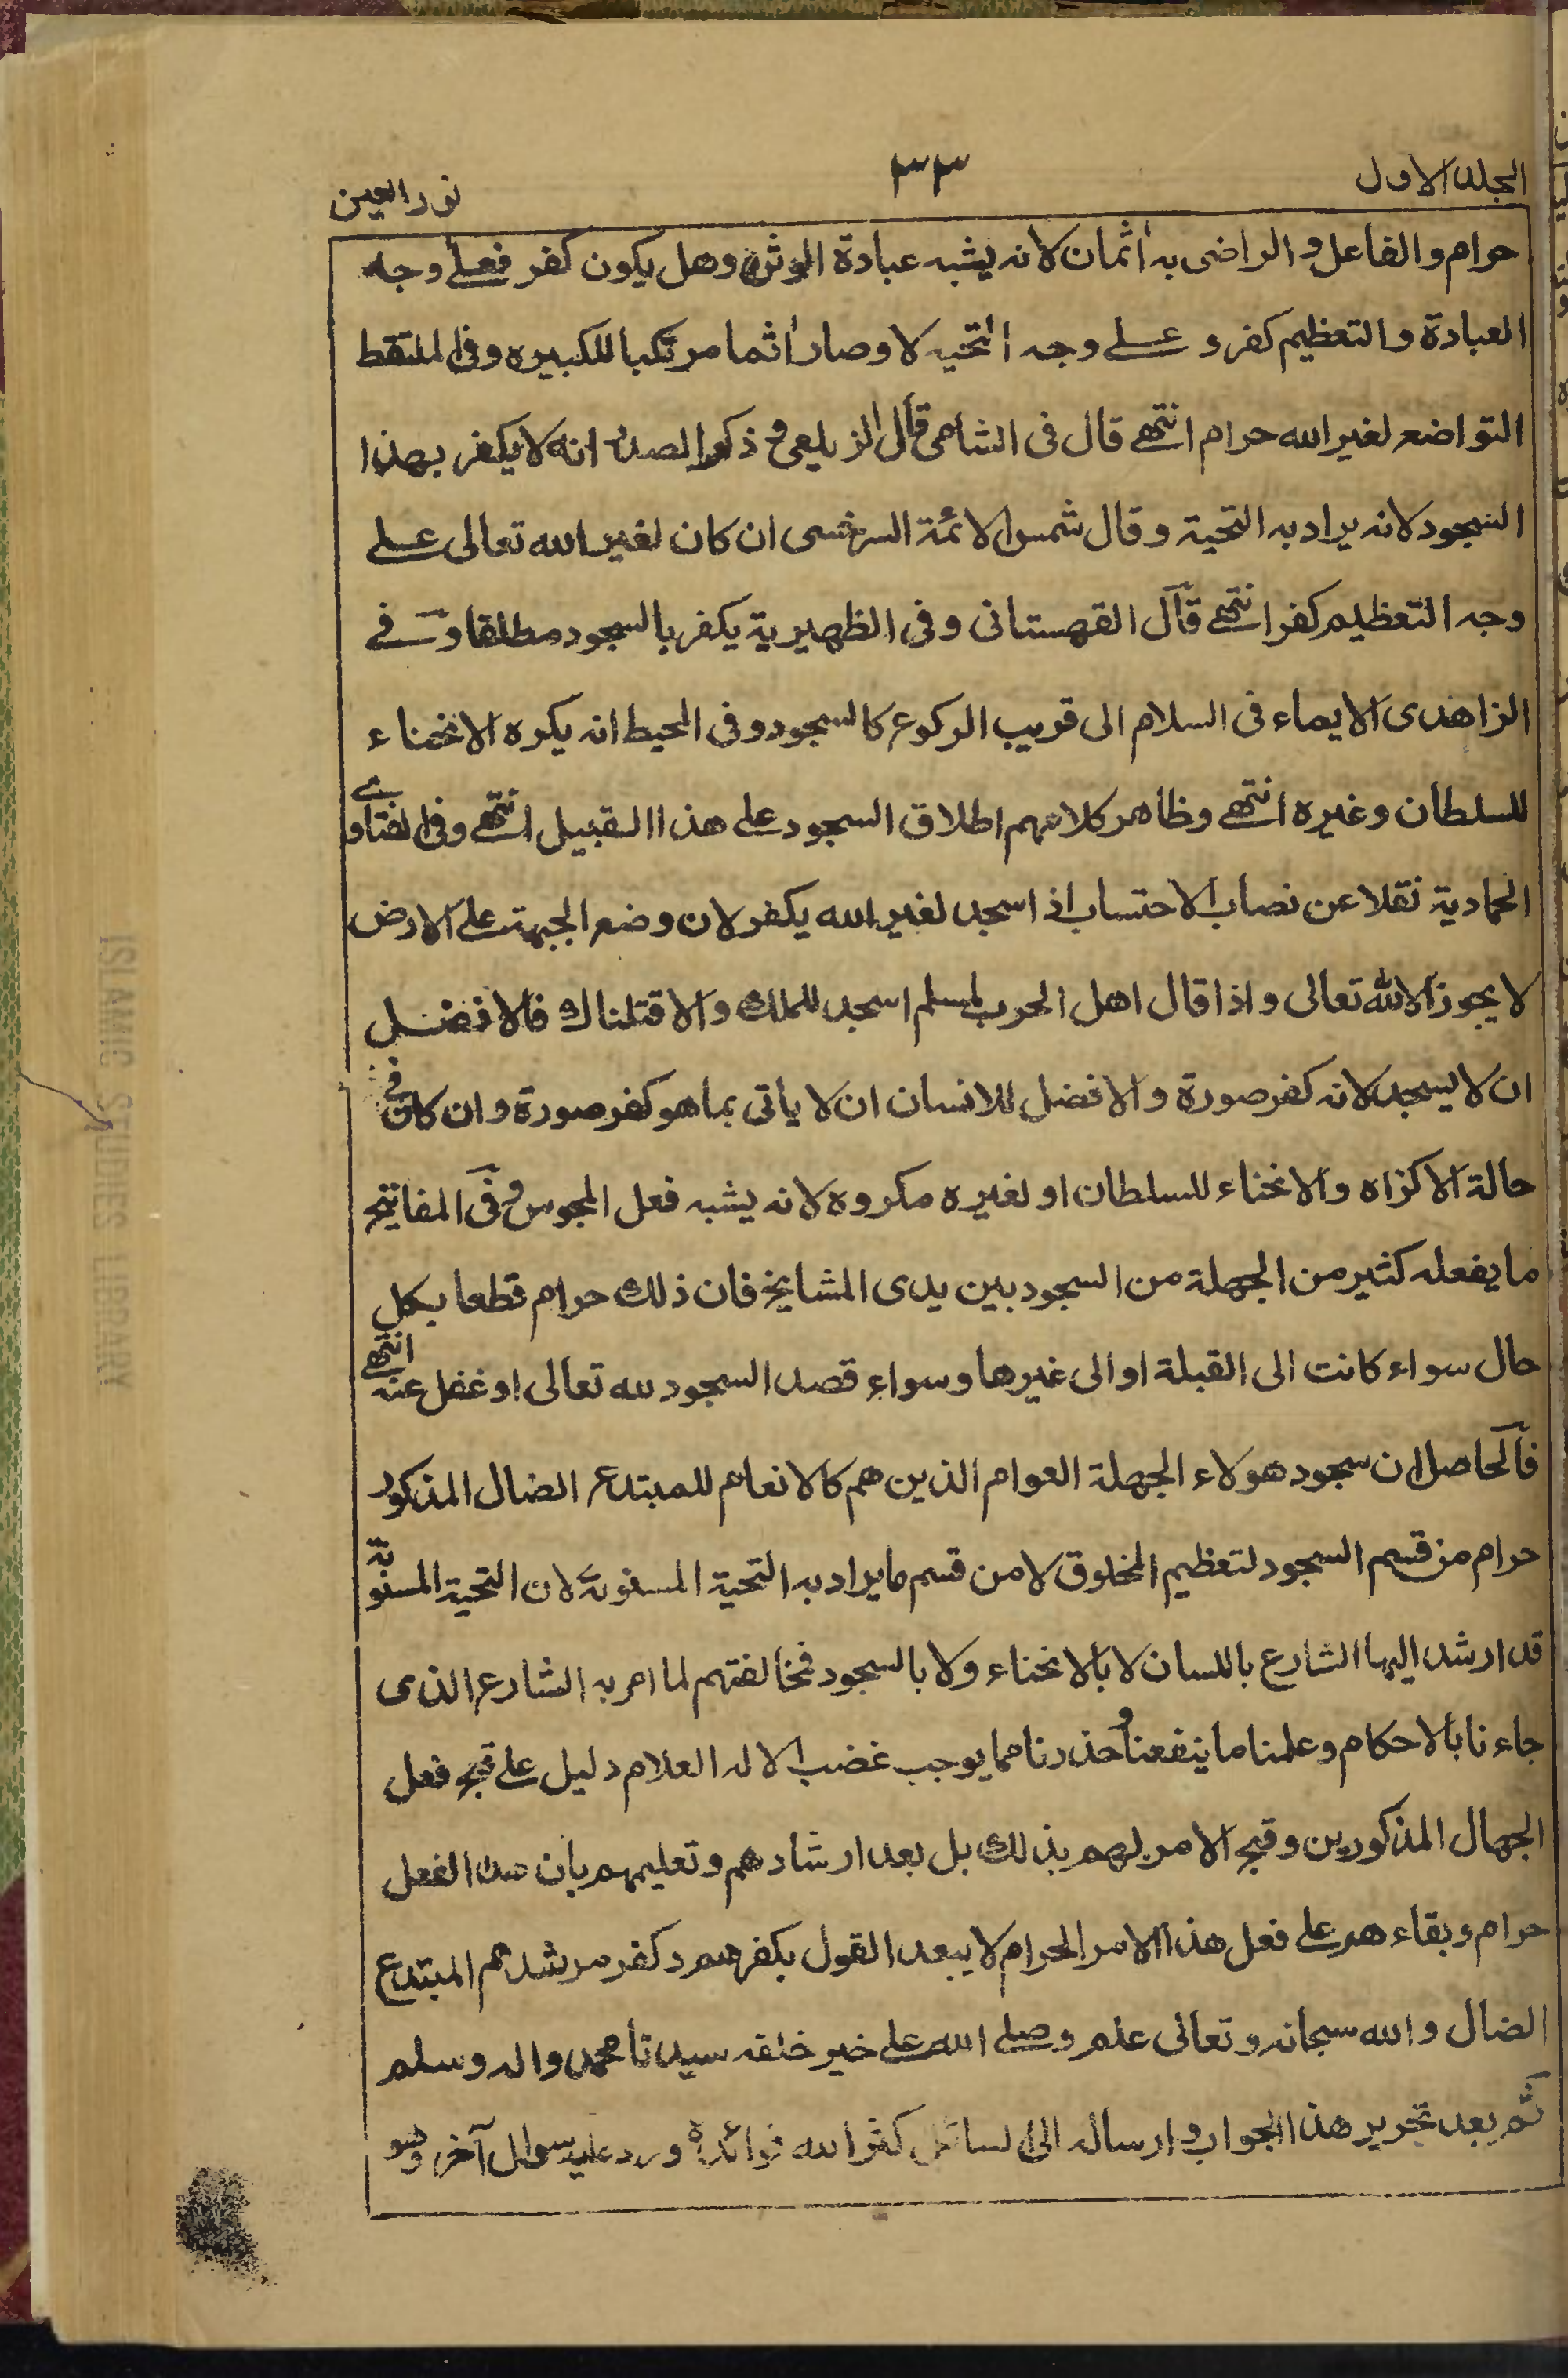 المجلد الاول
٣٣
نور العين
حرام والفاعل و الراضى به اثمان لانه يشبه عبادة الوثن وهل يكون كفر فعلى وجه
العبادة والتعظيم كفر و على وجه التحيه لا وصار اثما مرتكبا للكبيره وفى الملتقط
التواضع لغير الله حرام انتهى قال فى الشامى قال الزيلعى و ذكر الصدر انه لا يكفر بهذا
السجود لانه يراد به التحية وقال شمس الائمة السرخسى ان كان لغير الله تعالى على
وجه التعظيم كفر انتهى قال القهستانى وفى الظهيرية يكفر بالسجود مطلقا و فى
الزاهدى الايماء فى السلام الى قريب الركوع كالسجود وفى المحيط انه يكره الانحناء
للسلطان وغيره انتهى وظاهر كلامهم اطلاق السجود على هذا القبيل انتهى وفى الفتاوى
الحمادية نقلا عن نصاب الاحتساب اذا سجد لغير الله يكفر لان وضع الجبهة على الارض
لا يجوز الا لله تعالى واذا قال اهل الحرب لمسلم اسجد للملك والا قتلناك فالافضل
ان لا يسجد لانه كفر صورة والافضل للانسان ان لا ياتى بما هو كفر صورة وان كان فى
حالة الاكراه والانحناء للسلطان او لغيره مكروه لانه يشبه فعل المجوس و فى المفاتيح
ما يفعله كثير من الجهلة من السجود بين يدى المشايخ فان ذلك حرام قطعا بكل
حال سواء كانت الى القبلة او الى غيرها وسواء قصد السجود لله تعالى او غفل عنه انتهى
فالحاصل ان سجود هولاء الجهلة العوام الذين هم كالانعام للمبتدع الضال المذكور
حرام من قسم السجود لتعظيم المخلوق لا من قسم ما يراد به التحية المسنونة لان التحية المسنونة
قد ارشد اليها الشارع باللسان لا بالانحناء ولا بالسجود فمخالفتهم لما امر به الشارع الذى
جاءنا بالاحكام وعلمنا ما ينفعنا و حذرنا مما يوجب غضب الاله العلام دليل على قبح فعل
الجهال المذكورين وقبح الامر لهم بذلك بل بعد ارشادهم وتعليمهم بان هذا الفعل
حرام وبقاءهم على فعل هذا الامر الحرام لا يبعد القول بكفرهم و كفر مرشدهم المبتدع
الضال والله سبحانه وتعالى علم وصلى الله على خير خلقه سيدنا محمد واله وسلم
ثم بعد تحرير هذا الجواب و ارساله الى السائل كثر الله فوائده ورد عليه سوال آخر وهو
ISLAMIC STUDIES LIBRARY